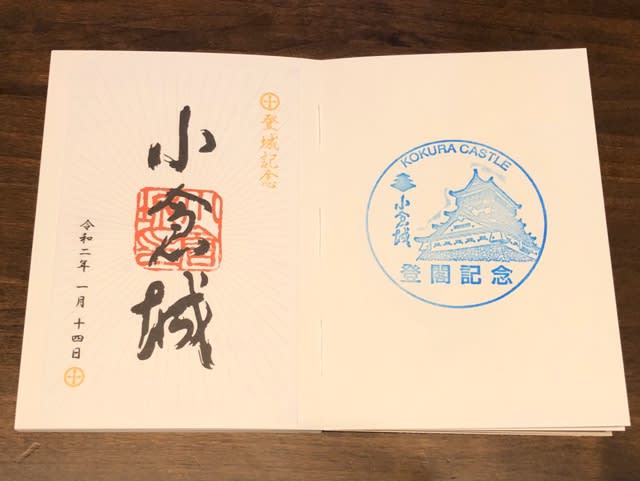 登城記念
小倉城
令和二年 一月 十四日
KOKURA CASTLE
小倉城
登閣記念